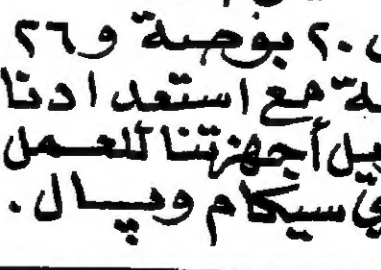 ٢٠ بوصة و ٢٦
مع استعدادنا
أجهزتنا للعمل
سيكام وبال .